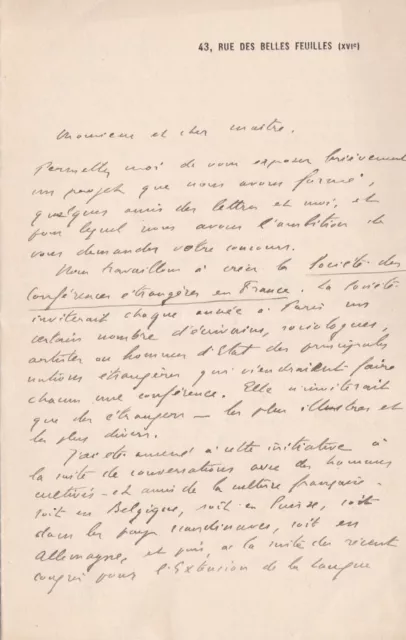 43, RUE DES BELLES FEUILLES (XVIe)
Monsieur et cher maître.
Permettez moi de vous exposer brièvement
un projet que nous avons formé,
quelques amis des lettres et moi, et
pour lequel nous avons l'ambition de
vous demander votre concours.
Nous travaillons à créer la Société des
Conférences étrangères en France. La Société
inviterait chaque année à Paris un
certain nombre d'écrivains, sociologues,
artistes ou hommes d'Etat des principales
nations étrangères qui viendraient faire
chacun une conférence. Elle n'inviterait
que des étrangers — les plus illustres et
les plus divers.
J'ai été amené à cette initiative à
la suite de conversations avec des hommes
cultivés - et amis de la culture française -
soit en Belgique, soit en Suisse, soit
dans les pays scandinaves, soit en
Allemagne, et puis, à la suite du récent
congrès pour l'Extension de la langue